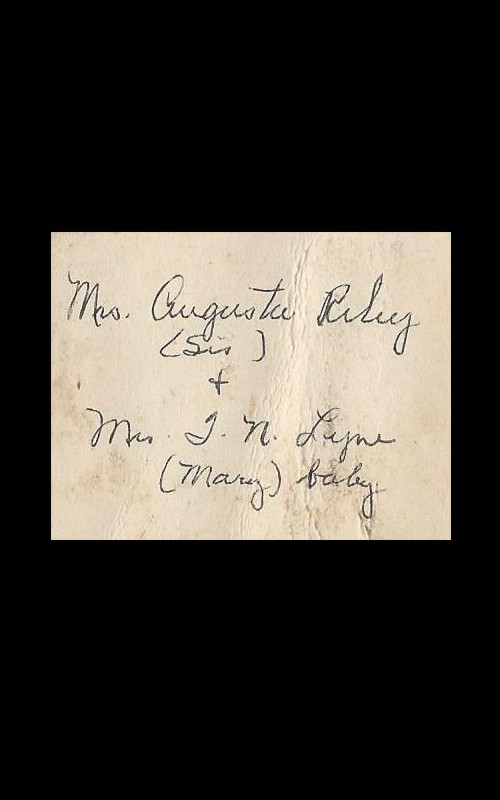 Mrs. Augusta Riley
(Sis)
+
Mrs. T. N. Lyne
(Mary) baby